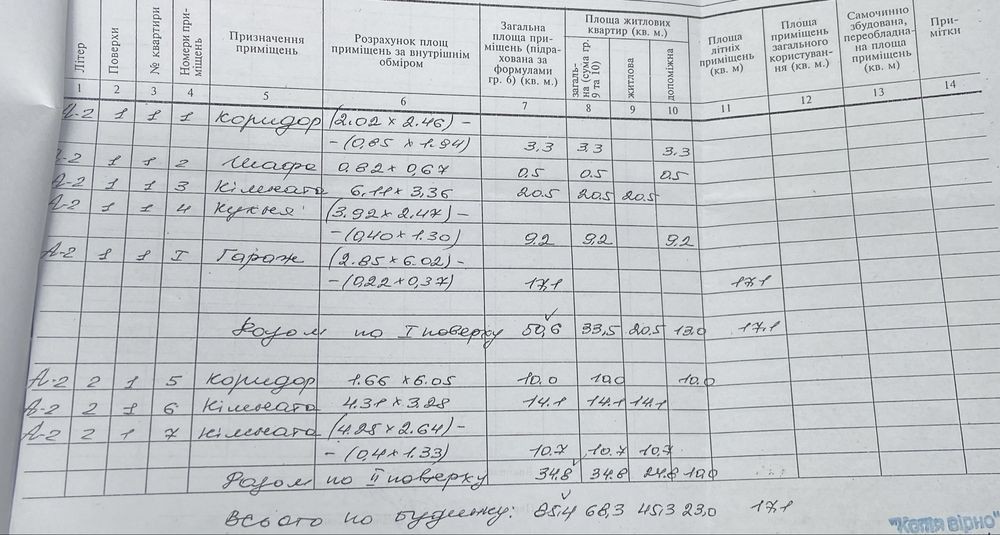 Літер
Поверхи
№ квартири
Номери при-
міщень
Призначення
приміщень
Розрахунок площ
приміщень за внутрішнім
обміром
Загальна
площа при-
міщень (підра-
хована за
формулами
гр. 6) (кв. м.)
Площа житлових
квартир (кв. м.)
загаль-
на (сума гр.
9 та 10)
житлова
допоміжна
Площа
літніх
приміщень
(кв. м)
Площа
приміщень
загального
користуван-
ня (кв. м.)
Самочинно
збудована,
переобладна-
на площа
приміщень
(кв. м)
При-
мітки
1 2 3 4 5 6 7 8 9 10 11 12 13 14
А-2 1 1 1 Коридор (2.02 x 2.46) -
- (0,85 x 1.94) 3,3 3,3 3,3
А-2 1 1 2 Шафа 0,82 x 0,67 0.5 0.5 0.5
А-2 1 1 3 Кімната 6.11 x 3,36 20.5 20.5 20.5
А-2 1 1 4 Кухня (3.92 x 2.47) -
- (0,40 x 1.30) 9,2 9,2 9,2
А-2 1 1 I Гараж (2.85 x 6.02) -
- (0,22 x 0,37) 17,1 17,1
Разом по I поверху 50,6 33,5 20,5 13,0 17,1
А-2 2 1 5 Коридор 1.66 x 6.05 10.0 10.0 10.0
А-2 2 1 6 Кімната 4.31 x 3.28 14.1 14.1 14.1
А-2 2 1 7 Кімната (4.25 x 2.64) -
- (0,4 x 1.33) 10.7 10.7 10.7
Разом по II поверху 34.8 34.8 24.8 10.0
Всього по будинку: 85,4 68,3 45,3 23,0 17,1
"Копія вірно"